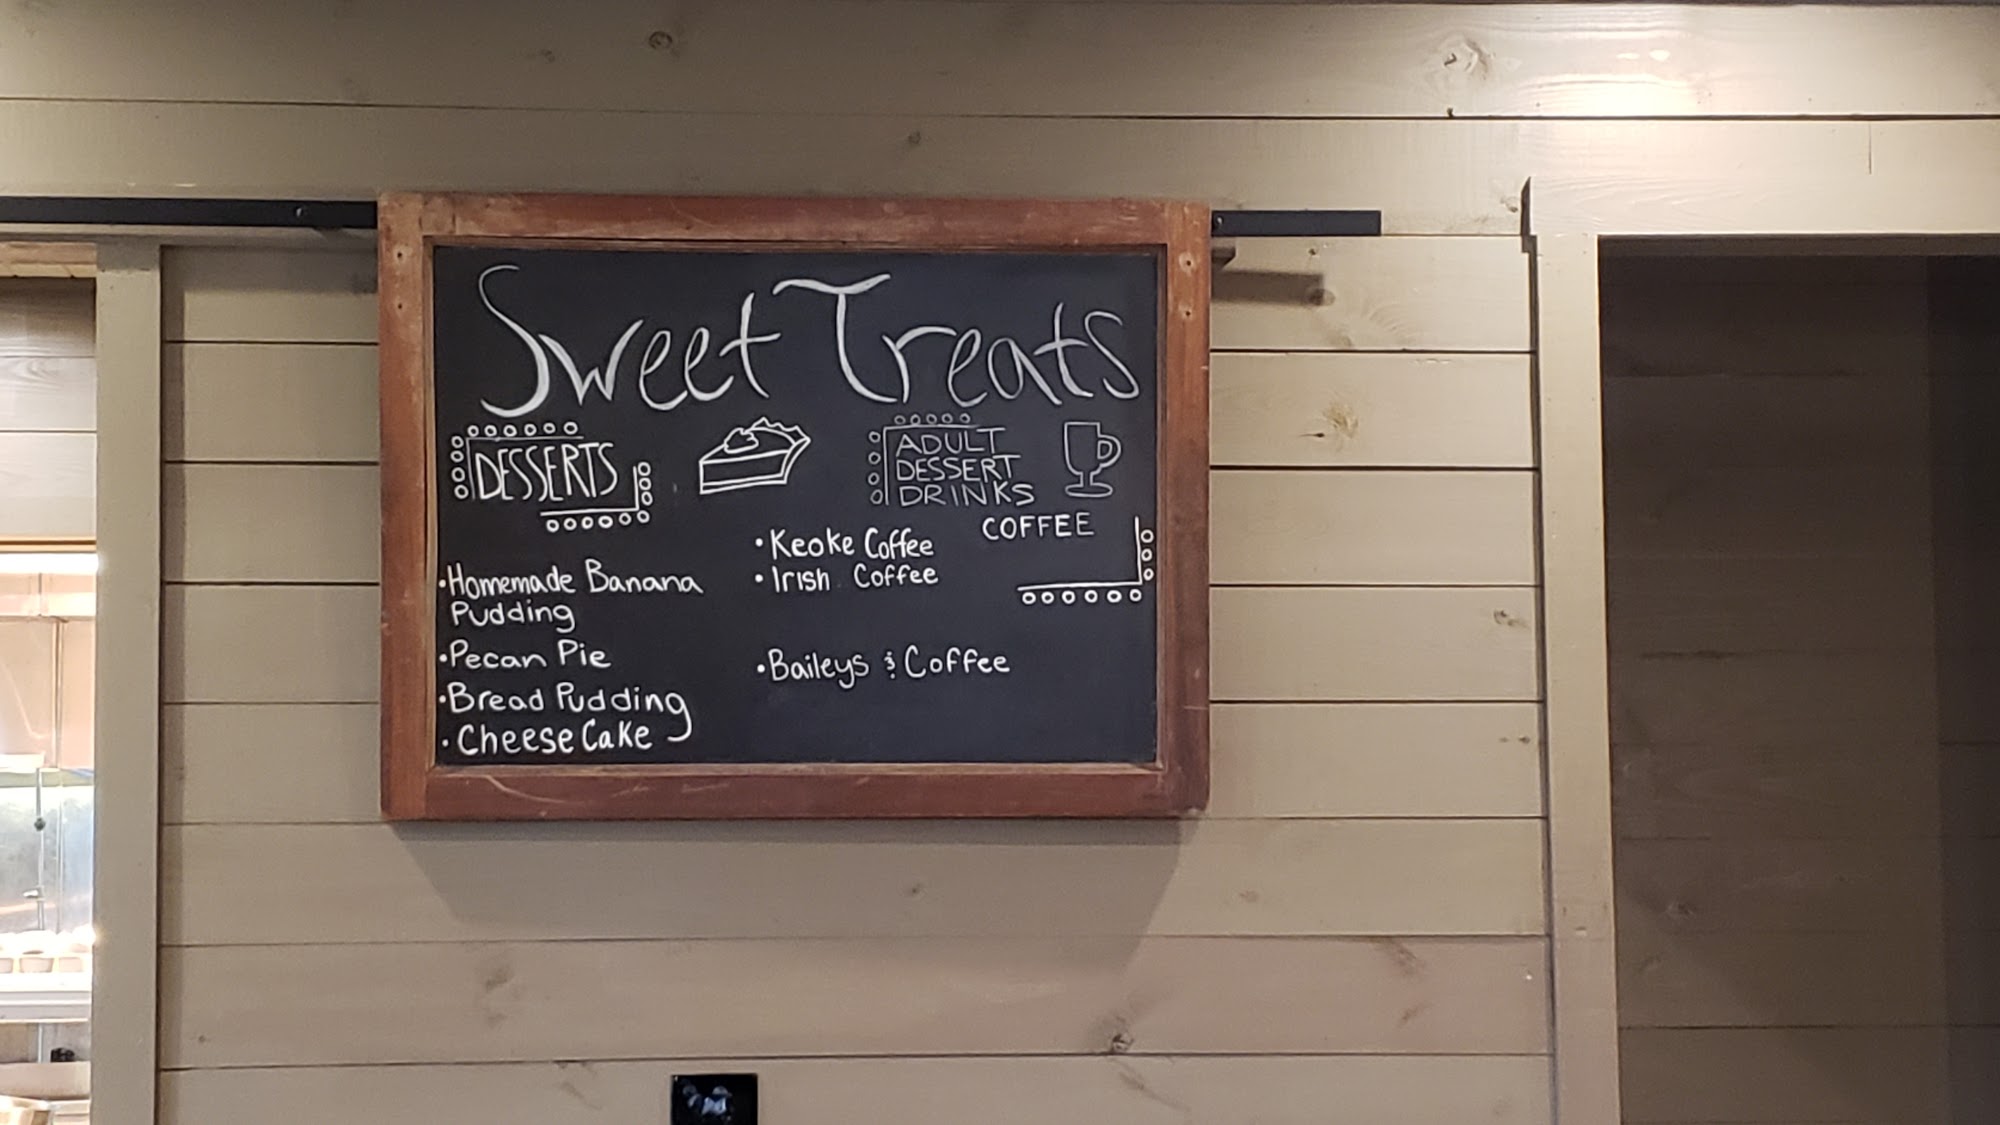 Sweet Treats
DESSERTS
• Homemade Banana
Pudding
• Pecan Pie
• Bread Pudding
• Cheese Cake
ADULT
DESSERT
DRINKS
COFFEE
• Keoke Coffee
• Irish Coffee
• Baileys & Coffee